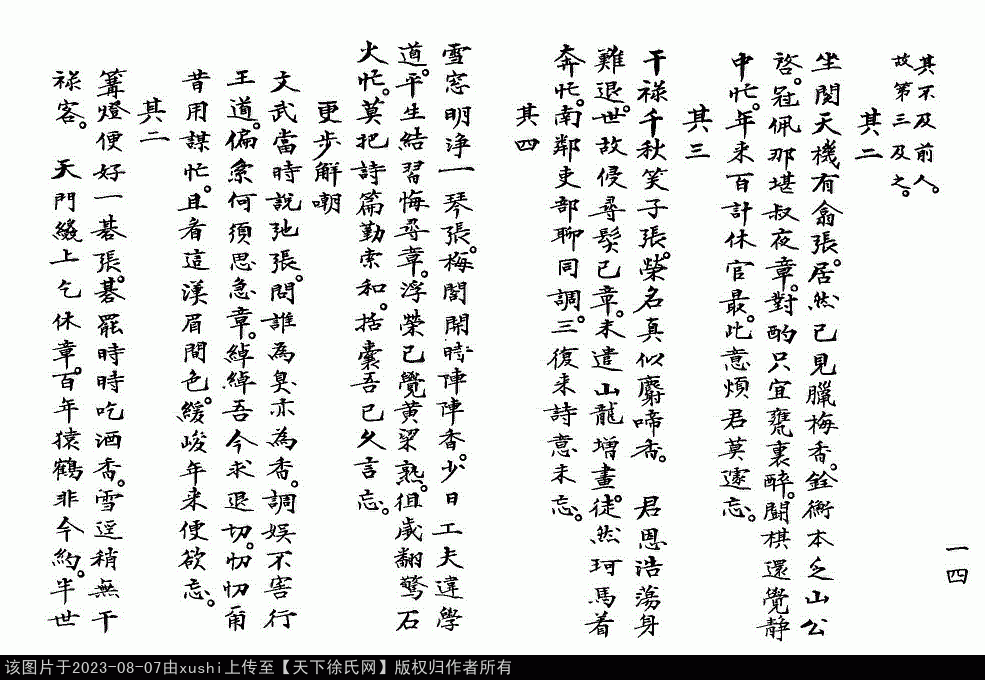 其不及前人。
故第三及之。
其二
坐閱天機有翕張。居然已見臘梅香。銓衡本乏山公
啓。冠佩那堪叔夜章。對酌只宜甕裏醉。鬪棋還覺静
中忙。年来百計休官最。此意煩君莫遽忘。
其三
干祿千秋笑子張。榮名真似麝啼香。 君恩浩蕩身
難退。世故侵尋鬓已章。未遣山龍增畫。徒然珂馬着
奔忙。南鄰吏部聊同調。三復来詩意未忘。
其四
雪窓明浄一琴張。梅閣閑時陣陣香。少日工夫違學
道。平生結習悔尋章。浮榮已覺黄粱熟。徂歲翻驚石
火忙。莫把詩篇勤索和。括囊吾已久言忘。
更步解嘲
文武當時説弛張。問誰為臭亦為香。調娱不害行
王道。偏急何須思急章。綽綽吾今求退切。忉忉爾
昔用謀忙。且看這漢眉間色。緩峻年来便欲忘。
其二
篝燈便好一碁張。碁罷時時吃酒香。雪逕稍無干
祿客。 天門緩上乞休章。百年猿鶴非今約。半世
一四
该图片于2023-08-07由xushi上传至【天下徐氏网】版权归作者所有